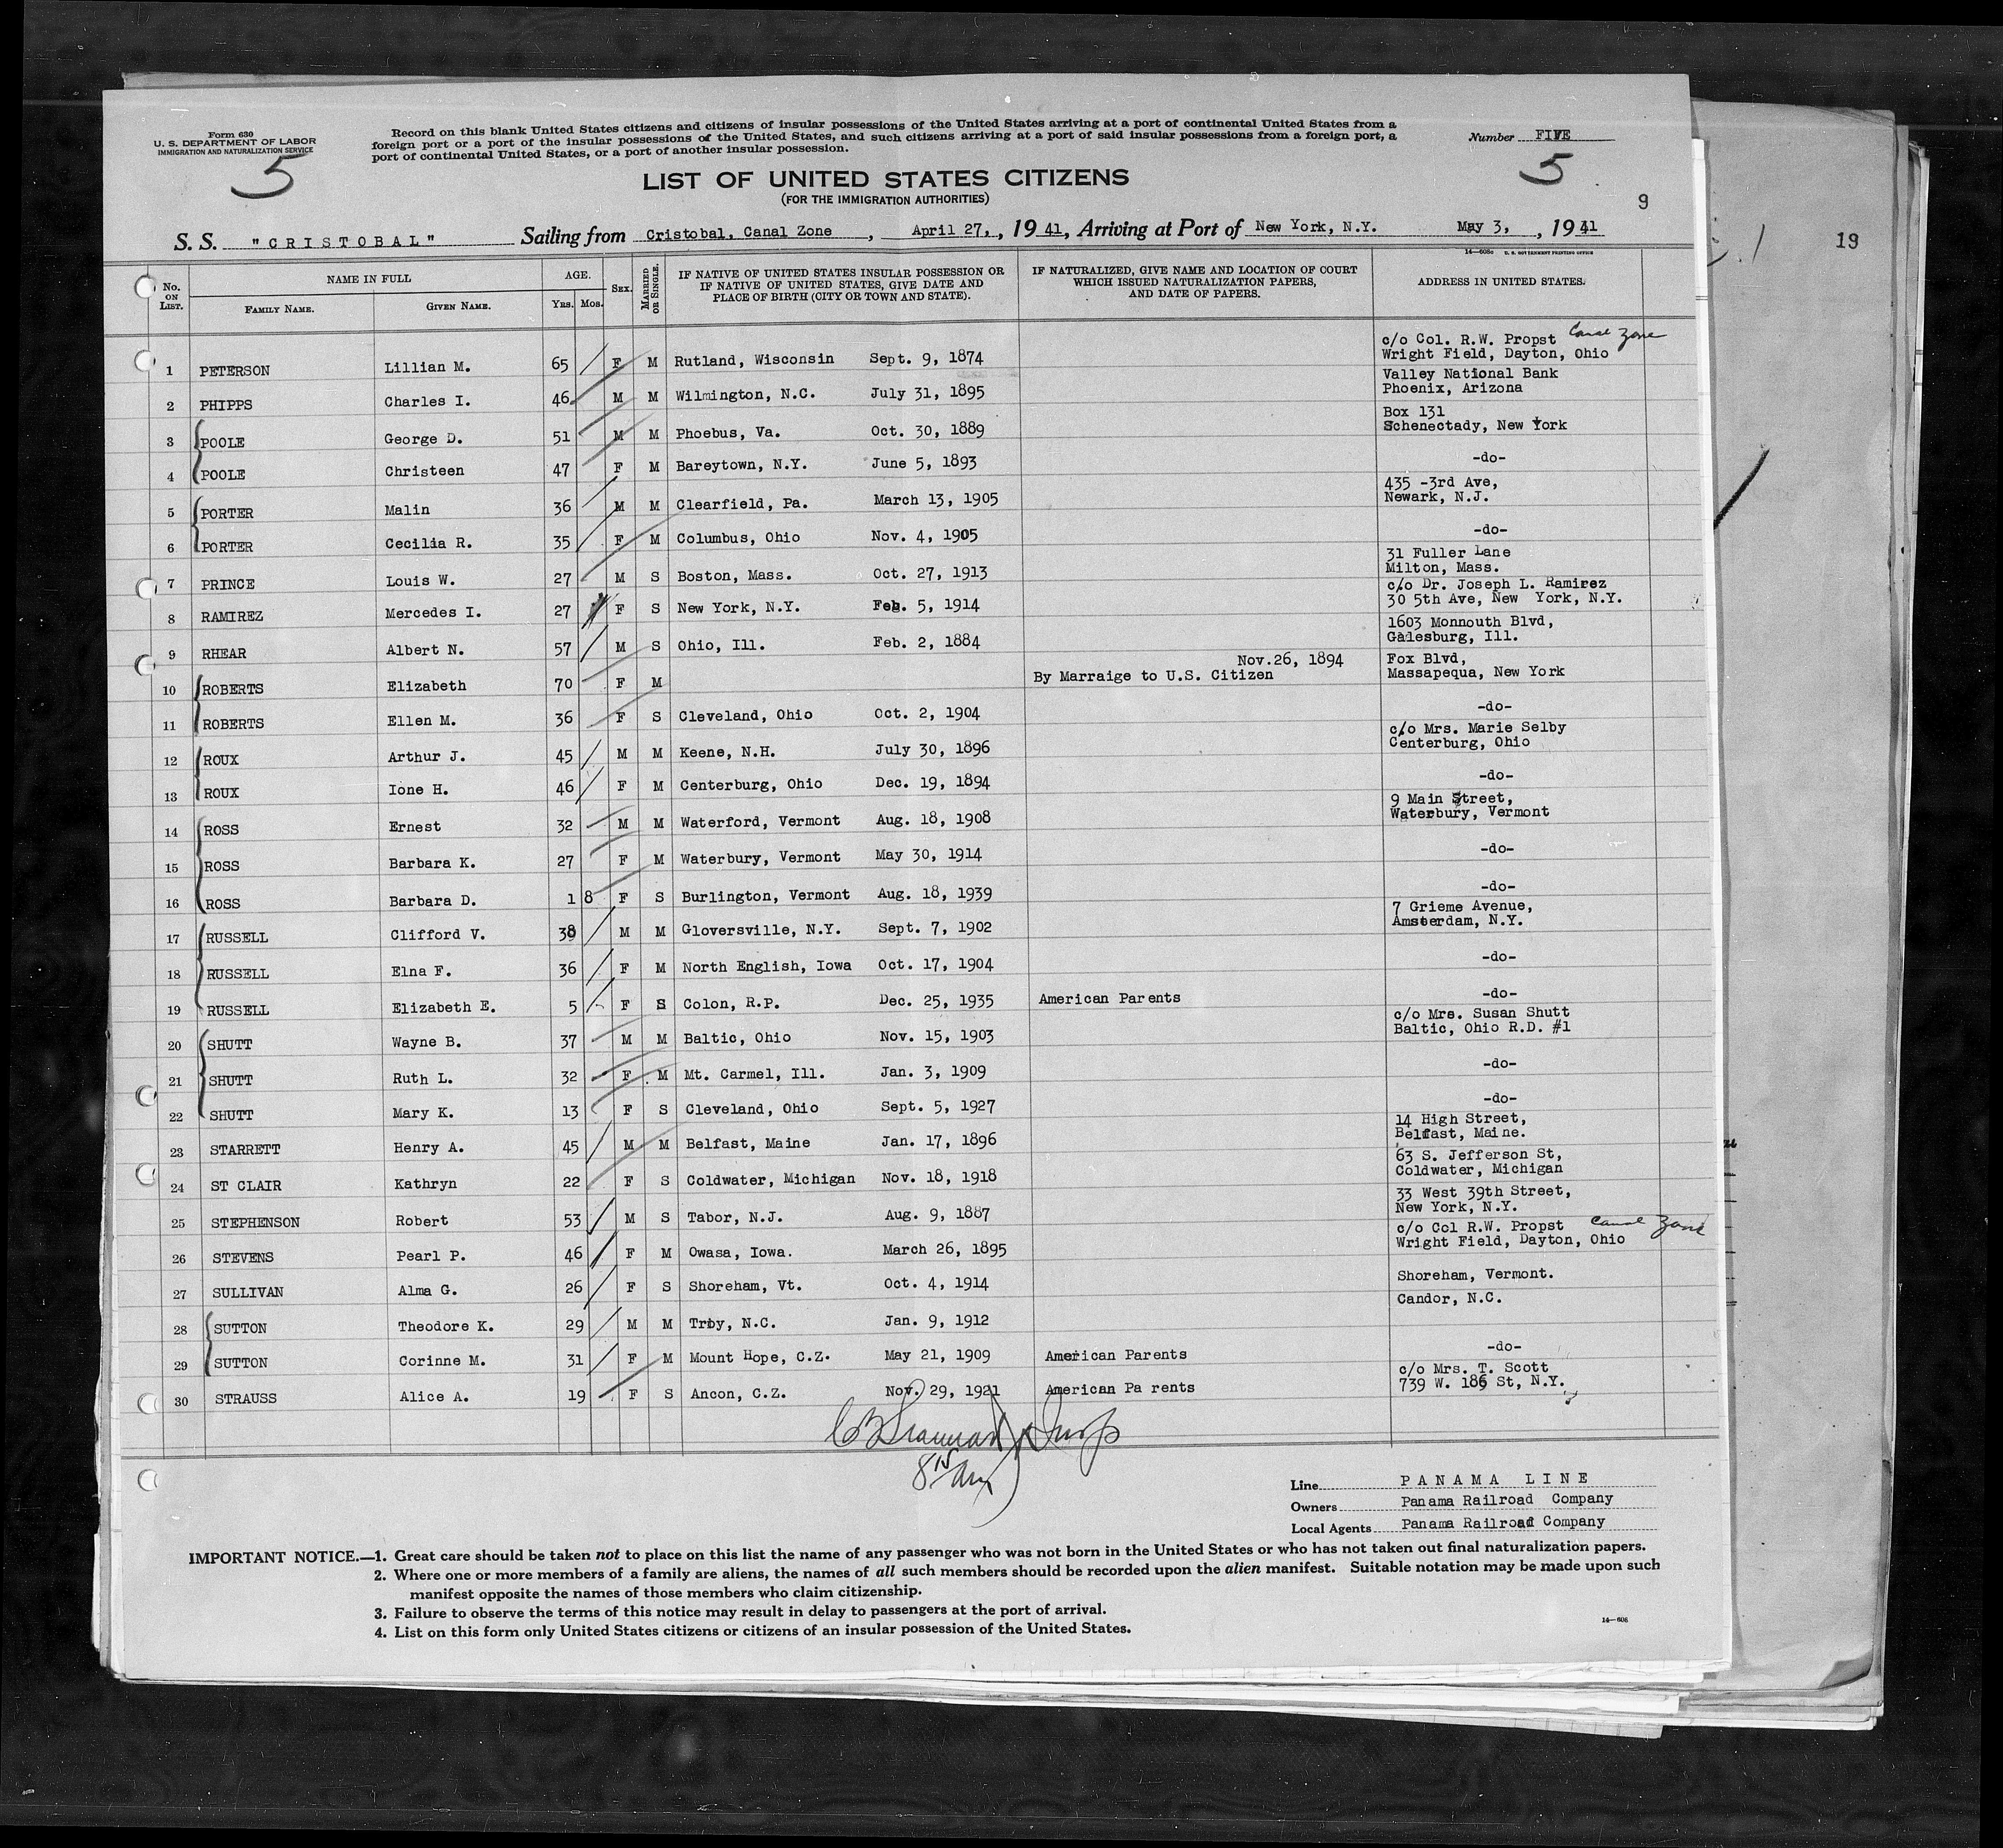 Form 630
U. S. DEPARTMENT OF LABOR
IMMIGRATION AND NATURALIZATION SERVICE
5
Record on this blank United States citizens and citizens of insular possessions of the United States arriving at a port of continental United States from a
foreign port or a port of the insular possessions of the United States, and such citizens arriving at a port of said insular possessions from a foreign port, a
port of continental United States, or a port of another insular possession.
Number FIVE
5
LIST OF UNITED STATES CITIZENS
(FOR THE IMMIGRATION AUTHORITIES)
9
19
S. S. "CRISTOBAL" Sailing from Cristobal, Canal Zone, April 27, , 19 41, Arriving at Port of New York, N.Y. May 3, , 19 41
14—608c U. S. GOVERNMENT PRINTING OFFICE
No. ON LIST. NAME IN FULL FAMILY NAME. GIVEN NAME. AGE. YRS. MOS. SEX. MARRIED OR SINGLE. IF NATIVE OF UNITED STATES INSULAR POSSESSION OR IF NATIVE OF UNITED STATES, GIVE DATE AND PLACE OF BIRTH (CITY OR TOWN AND STATE). IF NATURALIZED, GIVE NAME AND LOCATION OF COURT WHICH ISSUED NATURALIZATION PAPERS, AND DATE OF PAPERS. ADDRESS IN UNITED STATES.
1 PETERSON Lillian M. 65 F M Rutland, Wisconsin Sept. 9, 1874 c/o Col. R.W. Propst Canal Zone
Wright Field, Dayton, Ohio
2 PHIPPS Charles I. 46 M M Wilmington, N.C. July 31, 1895 Valley National Bank
Phoenix, Arizona
3 POOLE George D. 51 M M Phoebus, Va. Oct. 30, 1889 Box 131
Schenectady, New York
4 POOLE Christeen 47 F M Bareytown, N.Y. June 5, 1893 -do-
5 PORTER Malin 36 M M Clearfield, Pa. March 13, 1905 435 -3rd Ave,
Newark, N.J.
6 PORTER Cecilia R. 35 F M Columbus, Ohio Nov. 4, 1905 -do-
7 PRINCE Louis W. 27 M S Boston, Mass. Oct. 27, 1913 31 Fuller Lane
Milton, Mass.
8 RAMIREZ Mercedes I. 27 F S New York, N.Y. Feb. 5, 1914 c/o Dr. Joseph L. Ramirez
30 5th Ave, New York, N.Y.
9 RHEAR Albert N. 57 M S Ohio, Ill. Feb. 2, 1884 1603 Monnouth Blvd,
Galesburg, Ill.
10 ROBERTS Elizabeth 70 F M Nov.26, 1894
By Marraige to U.S. Citizen Fox Blvd,
Massapequa, New York
11 ROBERTS Ellen M. 36 F S Cleveland, Ohio Oct. 2, 1904 -do-
12 ROUX Arthur J. 45 M M Keene, N.H. July 30, 1896 c/o Mrs. Marie Selby
Centerburg, Ohio
13 ROUX Ione H. 46 F M Centerburg, Ohio Dec. 19, 1894 -do-
14 ROSS Ernest 32 M M Waterford, Vermont Aug. 18, 1908 9 Main Street,
Waterbury, Vermont
15 ROSS Barbara K. 27 F M Waterbury, Vermont May 30, 1914 -do-
16 ROSS Barbara D. 1 8 F S Burlington, Vermont Aug. 18, 1939 -do-
17 RUSSELL Clifford V. 38 M M Gloversville, N.Y. Sept. 7, 1902 7 Grieme Avenue,
Amsterdam, N.Y.
18 RUSSELL Elna F. 36 F M North English, Iowa Oct. 17, 1904 -do-
19 RUSSELL Elizabeth E. 5 F S Colon, R.P. Dec. 25, 1935 American Parents -do-
20 SHUTT Wayne B. 37 M M Baltic, Ohio Nov. 15, 1903 c/o Mrs. Susan Shutt
Baltic, Ohio R.D. #1
21 SHUTT Ruth L. 32 F M Mt. Carmel, Ill. Jan. 3, 1909 -do-
22 SHUTT Mary K. 13 F S Cleveland, Ohio Sept. 5, 1927 -do-
23 STARRETT Henry A. 45 M M Belfast, Maine Jan. 17, 1896 14 High Street,
Belfast, Maine.
24 ST CLAIR Kathryn 22 F S Coldwater, Michigan Nov. 18, 1918 63 S. Jefferson St,
Coldwater, Michigan
25 STEPHENSON Robert 53 M S Tabor, N.J. Aug. 9, 1887 33 West 39th Street,
New York, N.Y.
26 STEVENS Pearl P. 46 F M Owasa, Iowa. March 26, 1895 c/o Col R.W. Propst Canal Zone
Wright Field, Dayton, Ohio
27 SULLIVAN Alma G. 26 F S Shoreham, Vt. Oct. 4, 1914 Shoreham, Vermont.
28 SUTTON Theodore K. 29 M M Troy, N.C. Jan. 9, 1912 Candor, N.C.
29 SUTTON Corinne M. 31 F M Mount Hope, C.Z. May 21, 1909 American Parents -do-
30 STRAUSS Alice A. 19 F S Ancon, C.Z. Nov. 29, 1921 American Pa rents c/o Mrs. T. Scott
739 W. 186 St, N.Y.
Line PANAMA LINE
Owners Panama Railroad Company
Local Agents Panama Railroad Company
IMPORTANT NOTICE.—1. Great care should be taken not to place on this list the name of any passenger who was not born in the United States or who has not taken out final naturalization papers.
2. Where one or more members of a family are aliens, the names of all such members should be recorded upon the alien manifest. Suitable notation may be made upon such
manifest opposite the names of those members who claim citizenship.
3. Failure to observe the terms of this notice may result in delay to passengers at the port of arrival.
4. List on this form only United States citizens or citizens of an insular possession of the United States.
14—608